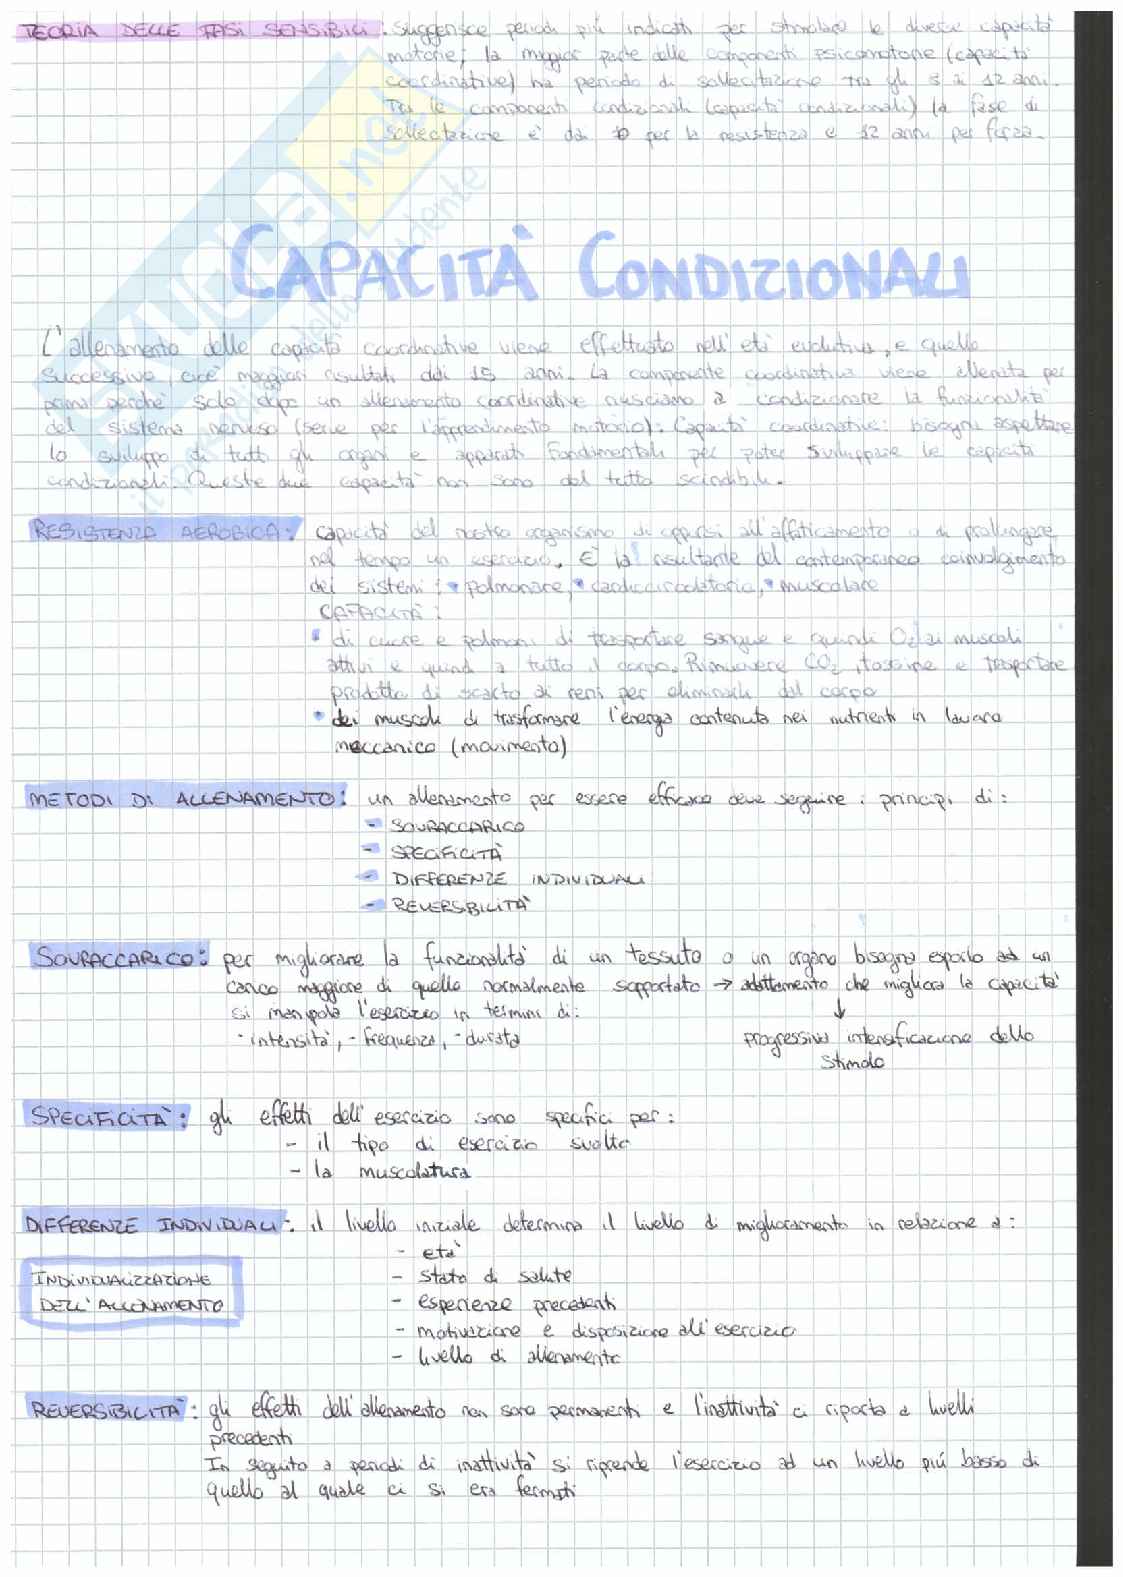 TEORIA DELLE FASI SENSIBILI: suggerisce periodi più indicati per stimolare le diverse capacità
motorie; la maggior parte delle componenti psicomotorie (capacità
coordinative) ha periodo di sollecitazione tra gli 5 ai 12 anni.
Tra le componenti condizionali (capacità condizionali) la fase di
sollecitazione è dai 10 per la resistenza e 12 anni per forza.
CAPACITÀ CONDIZIONALI
L'allenamento delle capacità coordinative viene effettuato nell'età evolutiva, e quello
successivo, cioè maggiori risultati dai 15 anni. La componente coordinativa viene allenata per
prima perché solo dopo un allenamento coordinativo riusciamo a condizionare la funzionalità
del sistema nervoso (serve per l'apprendimento motorio). Capacità coordinative: bisogna aspettare
lo sviluppo di tutti gli organi e apparati fondamentali per poter sviluppare le capacità
condizionali. Queste due capacità non sono del tutto scindibili.
RESISTENZA AEROBICA: capacità del nostro organismo di opporsi all'affaticamento o di prolungare
nel tempo un esercizio. È la risultante del contemporaneo coinvolgimento
dei sistemi: • polmonare, • cardiocircolatorio, • muscolare
CAPACITÀ:
• di cuore e polmoni di trasportare sangue e quindi O2 ai muscoli
attivi e quindi a tutto il corpo. Rimuovere CO2, tossine e trasportare
prodotto di scarto ai reni per eliminarli dal corpo
• dei muscoli di trasformare l'energia contenuta nei nutrienti in lavoro
meccanico (movimento)
METODI DI ALLENAMENTO: un allenamento per essere efficace deve seguire i principi di:
- SOVRACCARICO
- SPECIFICITÀ
- DIFFERENZE INDIVIDUALI
- REVERSIBILITÀ
SOVRACCARICO: per migliorare la funzionalità di un tessuto o un organo bisogna esporlo ad un
carico maggiore di quello normalmente sopportato → adattamento che migliora la capacità
si manipola l'esercizio in termini di:
- intensità, - frequenza, - durata
↓
progressiva intensificazione dello
stimolo
SPECIFICITÀ: gli effetti dell'esercizio sono specifici per:
- il tipo di esercizio svolto
- la muscolatura
DIFFERENZE INDIVIDUALI: il livello iniziale determina il livello di miglioramento in relazione a:
- età
INDIVIDUALIZZAZIONE
DELL'ALLENAMENTO
- stato di salute
- esperienze precedenti
- motivazione e disposizione all'esercizio
- livello di allenamento
REVERSIBILITÀ: gli effetti dell'allenamento non sono permanenti e l'inattività ci riporta a livelli
precedenti
In seguito a periodi di inattività si riprende l'esercizio ad un livello più basso di
quello al quale ci si era fermati